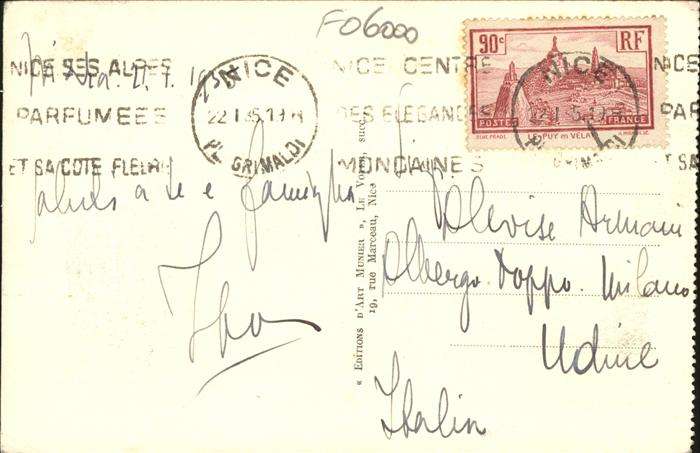 F06000
NICE SES ALPES
PARFUMEES
ET SA COTE FLEURI
NICE
22 1 35
PL GRIMALDI
NICE CENTRE
DES ELEGANCES
MONDAINES
90c RF
POSTES FRANCE
LE PUY EN VELAY
NICE
NICE
PARFU
ET SA
Saluts a te e famiglia
« EDITIONS D'ART MUNIER », LE VOYER, succ.
19, rue Marceau, Nice
Alevise Armani
Albergo Toppo. Milano
Udine
Italia